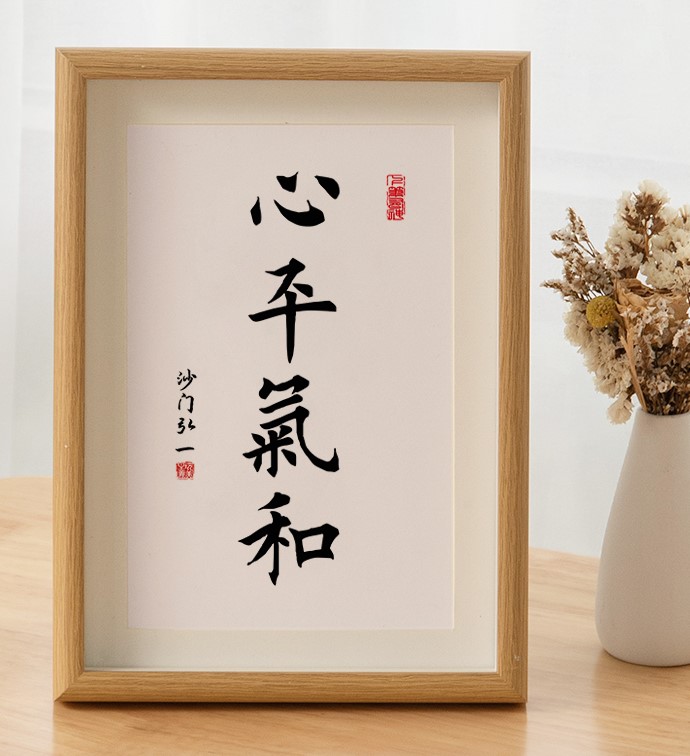 心平氣和
沙门弘一